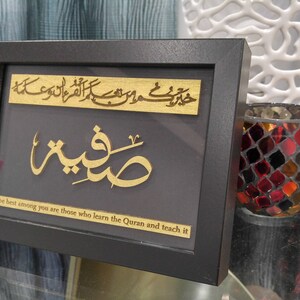 خيركم من تعلم القرآن وعلمه
صفية
best among you are those who learn the Quran and teach it